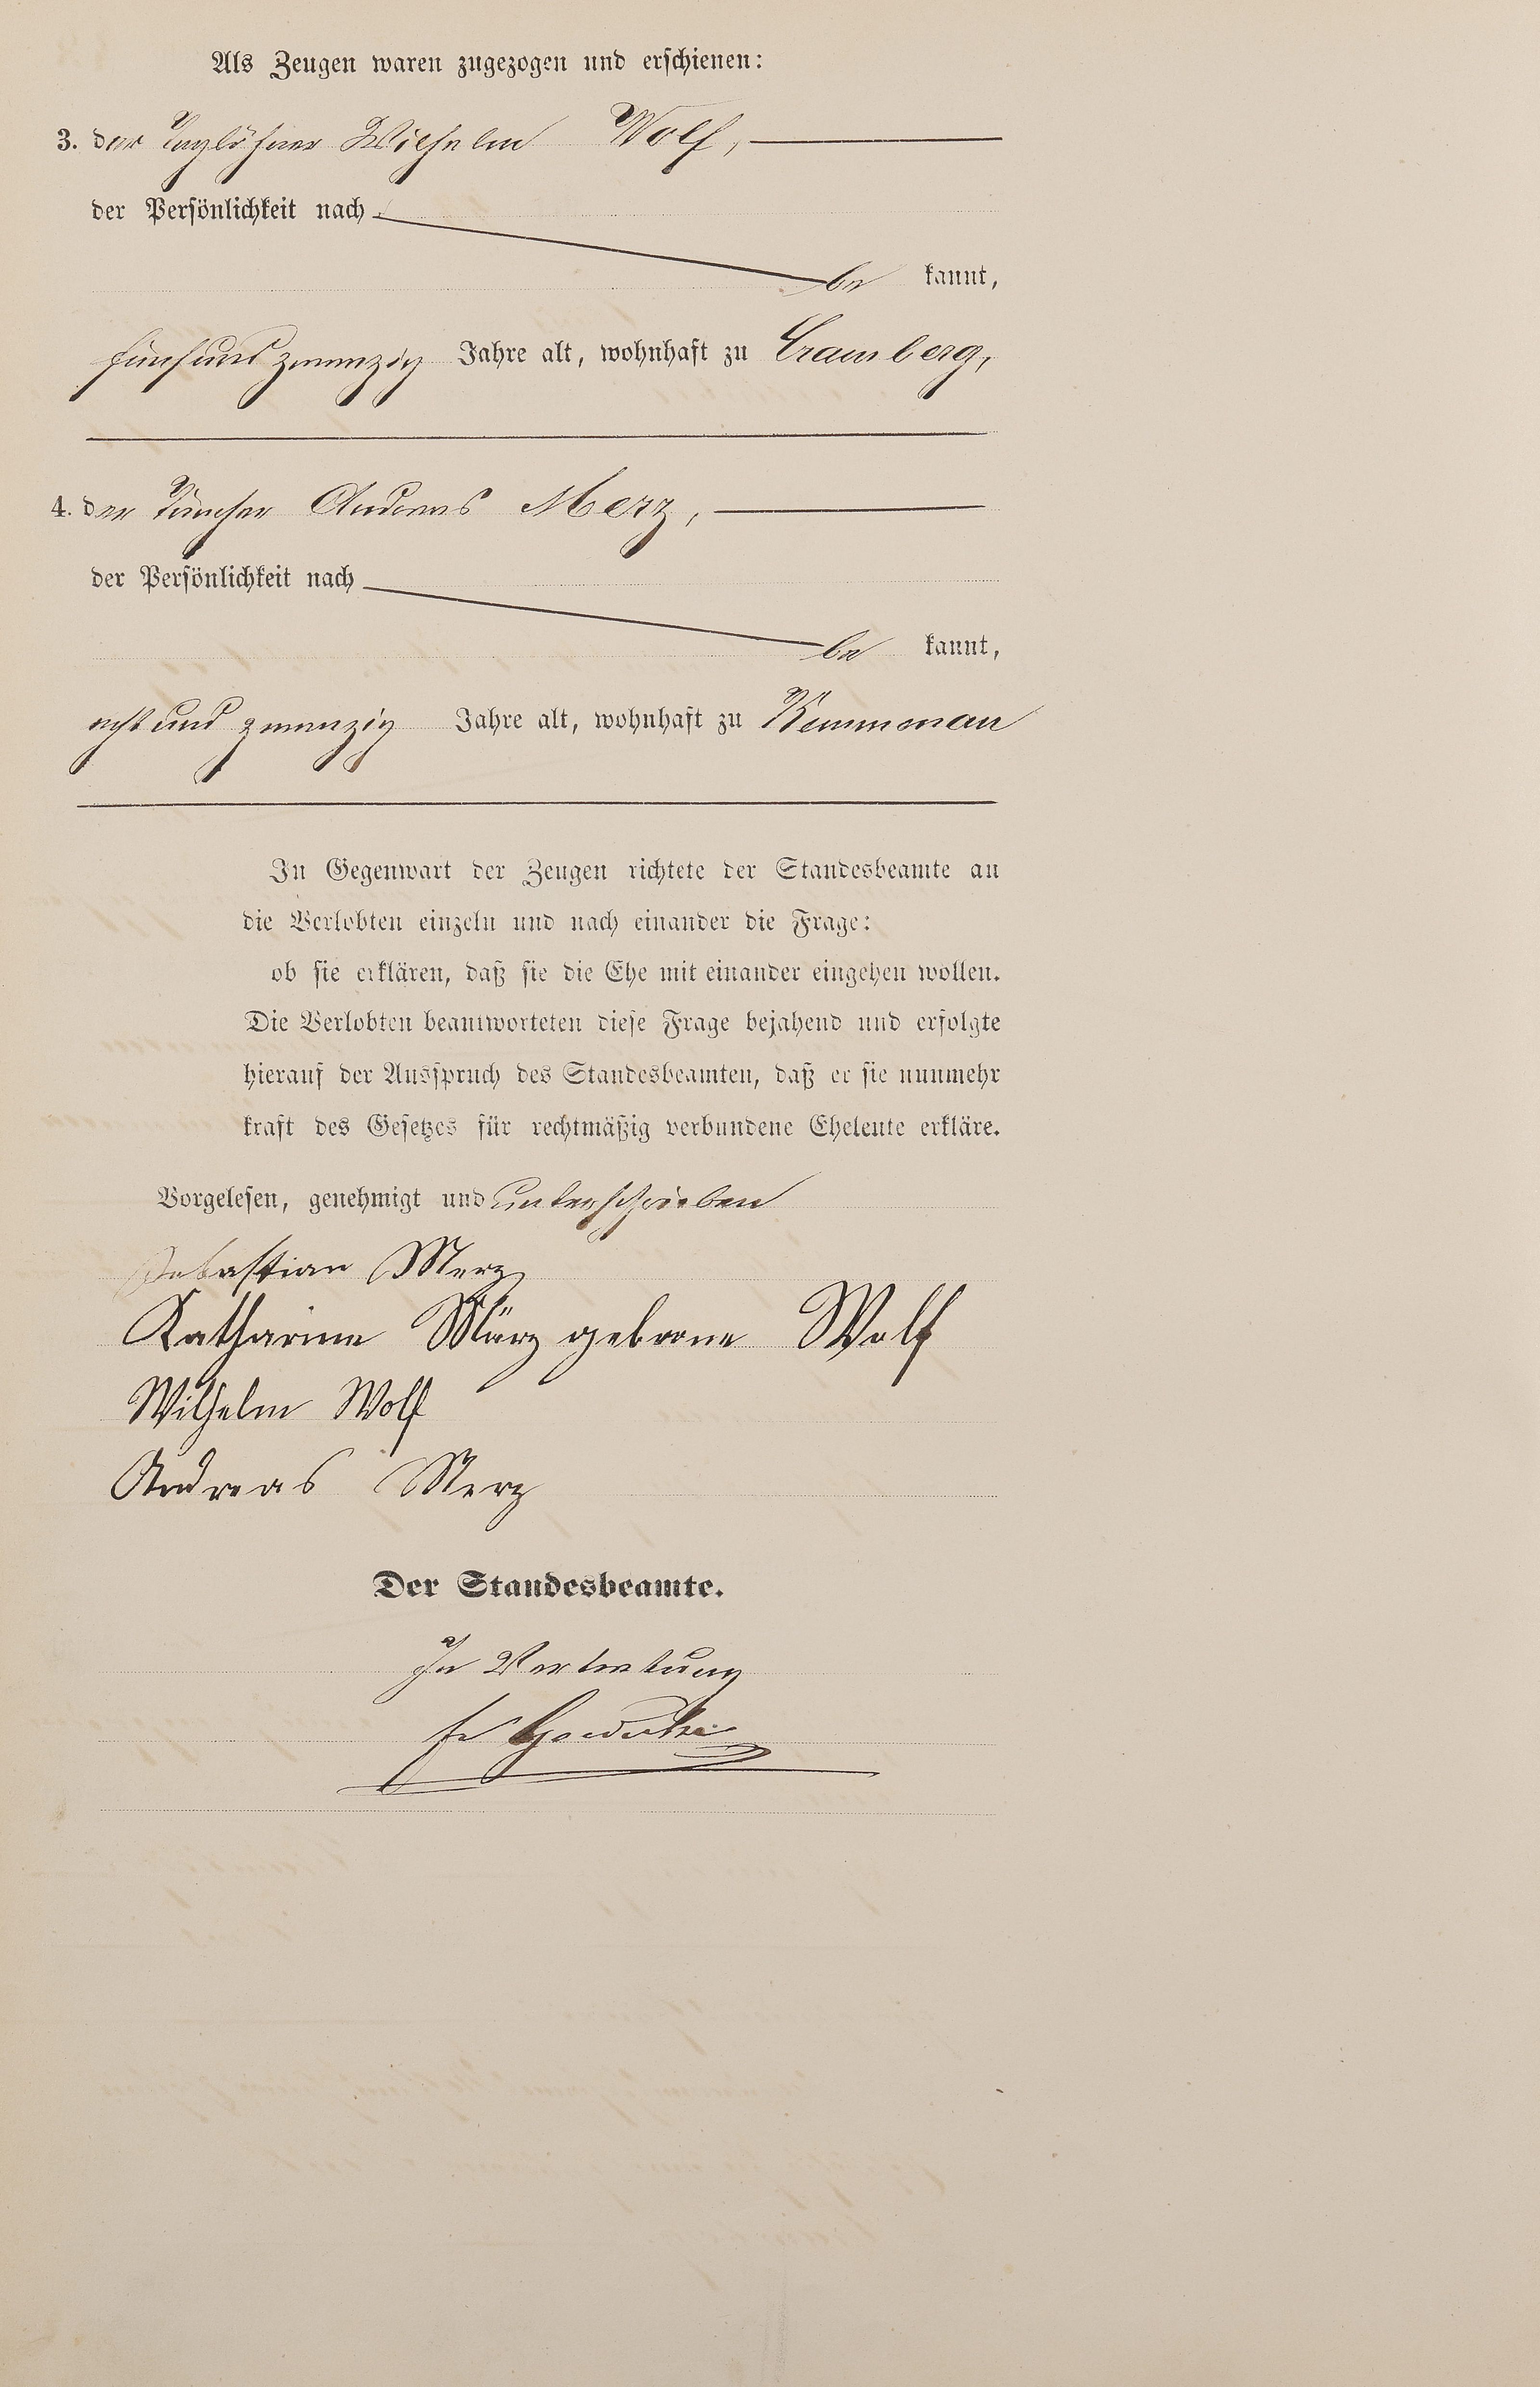 Als Zeugen waren zugezogen und erschienen:
3. der Taglöhner Wilhelm Wolf,
der Persönlichkeit nach
be kannt,
fünfundzwanzig Jahre alt, wohnhaft zu Cramberg,
4. der Tüncher Andreas Merz,
der Persönlichkeit nach
be kannt,
acht und zwanzig Jahre alt, wohnhaft zu Kemmenau
In Gegenwart der Zeugen richtete der Standesbeamte an
die Verlobten einzeln und nach einander die Frage:
ob sie erklären, daß sie die Ehe mit einander eingehen wollen.
Die Verlobten beantworteten diese Frage bejahend und erfolgte
hierauf der Ausspruch des Standesbeamten, daß er sie nunmehr
kraft des Gesetzes für rechtmäßig verbundene Eheleute erkläre.
Vorgelesen, genehmigt und unterschrieben
Sebastian Merz
Katharine März geborne Wolf
Wilhelm Wolf
Andreas Merz
Der Standesbeamte.
In Vertretung